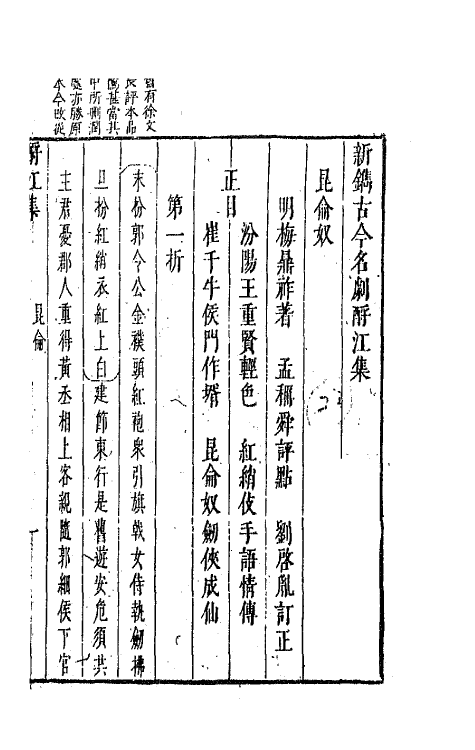 新鐫古今名劇酹江集
昆侖奴
明梅鼎祚著 孟稱舜評點 劉啓胤訂正
正目
汾陽王重賢輕色 紅綃伎手語情傳
崔千牛侯門作壻 昆侖奴劒俠成仙
第一折
末扮郭令公金襆頭紅袍衆引旗戟女侍執劒拂
旦扮紅綃衣紅上白建節東行是舊遊安危須共
主君憂郡人重得黃丞相上客親隨郭細侯下官
有徐文
長評本品
隲甚當其
中所刪潤
處亦勝原
本今改從
酹江集
昆侖
一